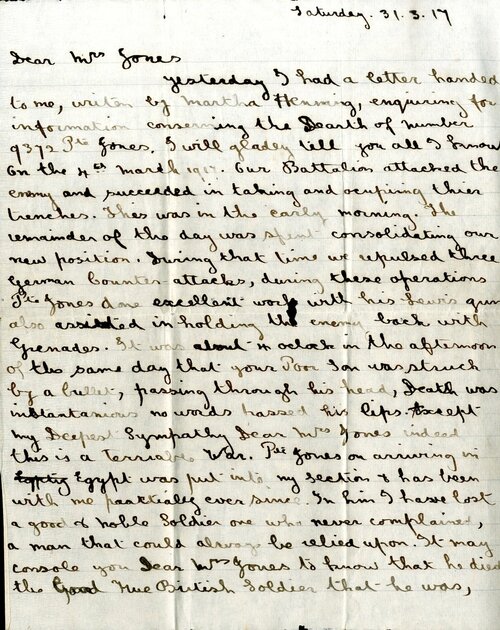 Saturday. 31.3.17
Dear Mrs Jones
yesterday I had a letter handed
to me, writen by Martha Henning, enquiring for
information conserning the Dearth of number
9372 Pte Jones. I will gladey tell you all I know
On the 4th March 1917. Our Battalion attacked the
enemy and succeeded in taking and ocupiing thier
trenches. This was in the early morning. The
remainder of the day was spent consolidating our
new position. During that time we repulsed three
German Counter attacks, during these operations
Pte Jones done excellent work with his Lewis gun
also assisted in holding the enemy back with
Grenades. It was about 4 oclock in the afternoon
of the same day that your Poor Son was struck
by a bullet, passing through his head, Death was
instantanious no words passed his lips. Except
my Deepest Sympathy Dear Mrs Jones indeed
this is a Terriable War. Pte Jones on arriving in
Egypt was put into my section & has been
with me practialey ever since. In him I have lost
a good & noble Soldier one who never complained,
a man that could always be relied upon. It may
console you Dear Mrs Jones to know that he died
the Good True British Soldier that he was,